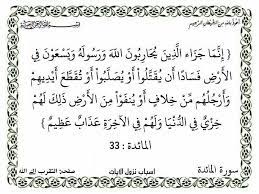 أعوذ بالله من الشيطان الرجيم
{ إِنَّمَا جَزَاءُ الَّذِينَ يُحَارِبُونَ اللَّهَ وَرَسُولَهُ وَيَسْعَوْنَ فِي
الْأَرْضِ فَسَادًا أَن يُقَتَّلُوا أَوْ يُصَلَّبُوا أَوْ تُقَطَّعَ أَيْدِيهِمْ
وَأَرْجُلُهُم مِّنْ خِلَافٍ أَوْ يُنفَوْا مِنَ الْأَرْضِ ذَلِكَ لَهُمْ
خِزْيٌ فِي الدُّنْيَا وَلَهُمْ فِي الْآخِرَةِ عَذَابٌ عَظِيمٌ }
المائدة : 33
سورة المائدة
اسباب نزول الآيات
صفحة: التقرب إلى الله